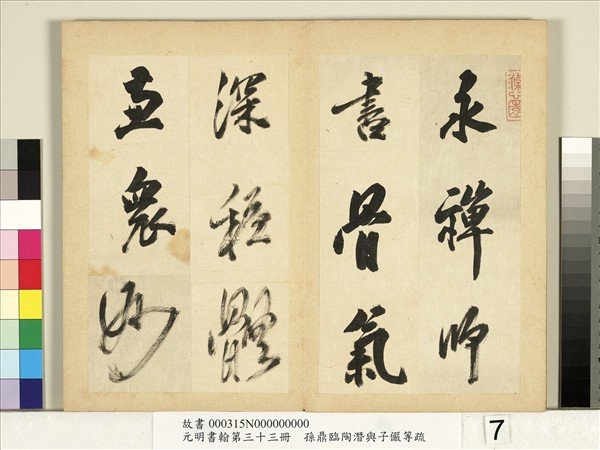 永禪師
書骨氣
深穩體
兼衆妙
故書 000315N000000000
元明書翰第三十三冊　孫鼎臨陶潛與子儼等疏
7